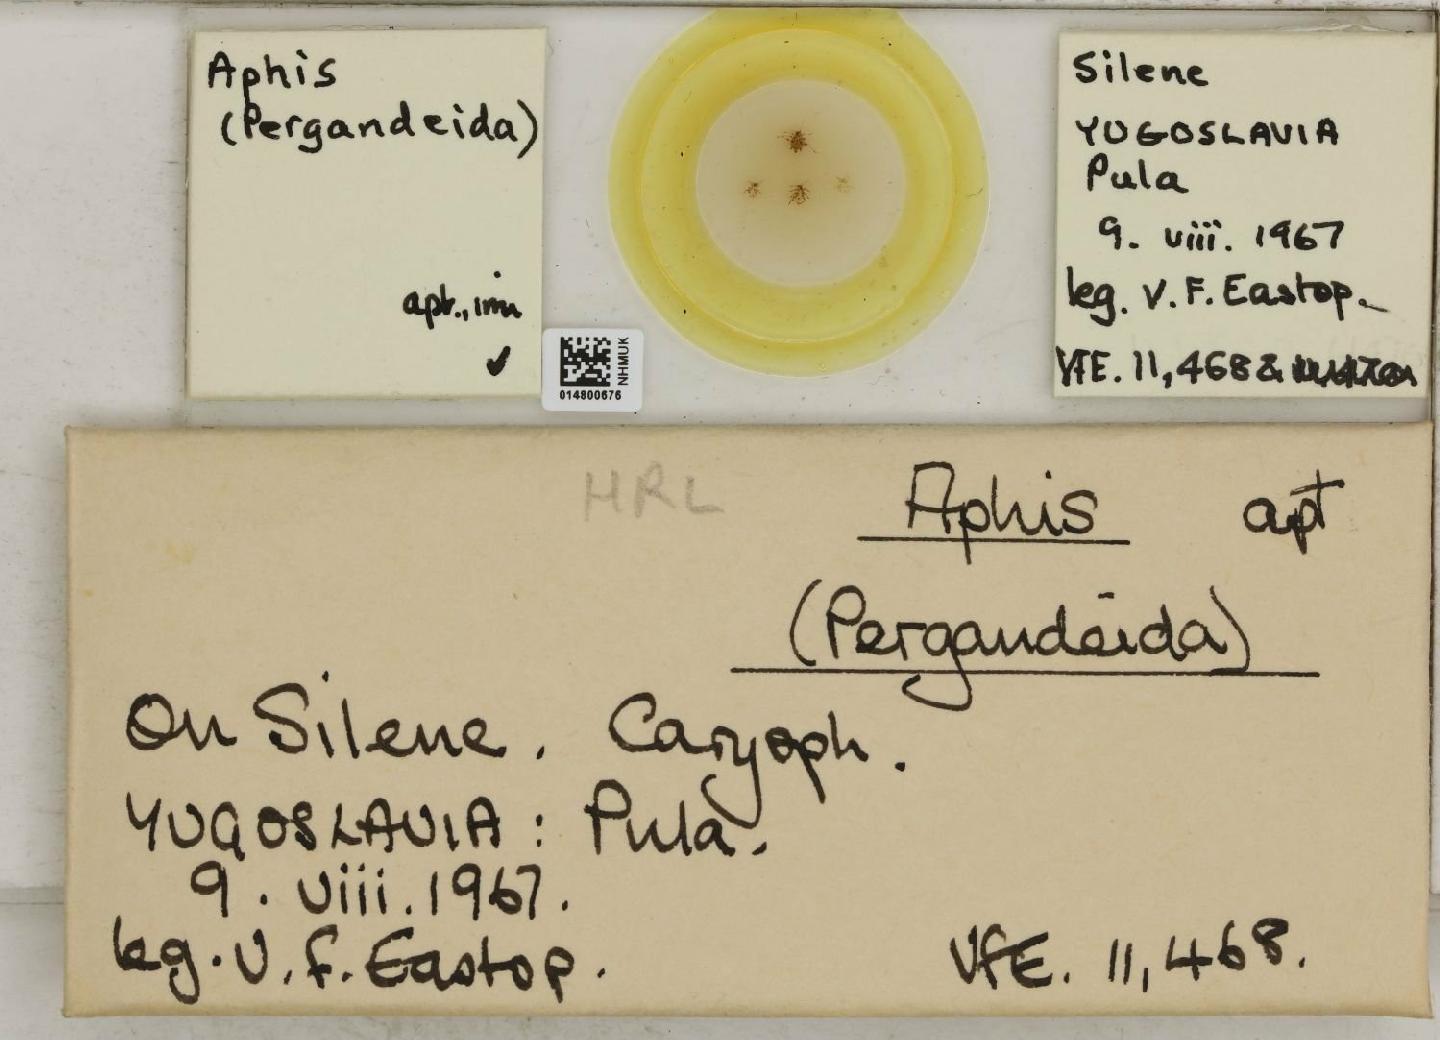 Aphis
(Pergandeida)
apt., imm
Silene
YUGOSLAVIA
Pula
9. viii. 1967
leg. V. F. Eastop.
VFE. 11,468 &
NHMUK
014800676
HRL
Aphis apt
(Pergandeida)
On Silene. Caryoph.
YUGOSLAVIA: Pula.
9. viii. 1967.
leg. V. F. Eastop.
VFE. 11,468.